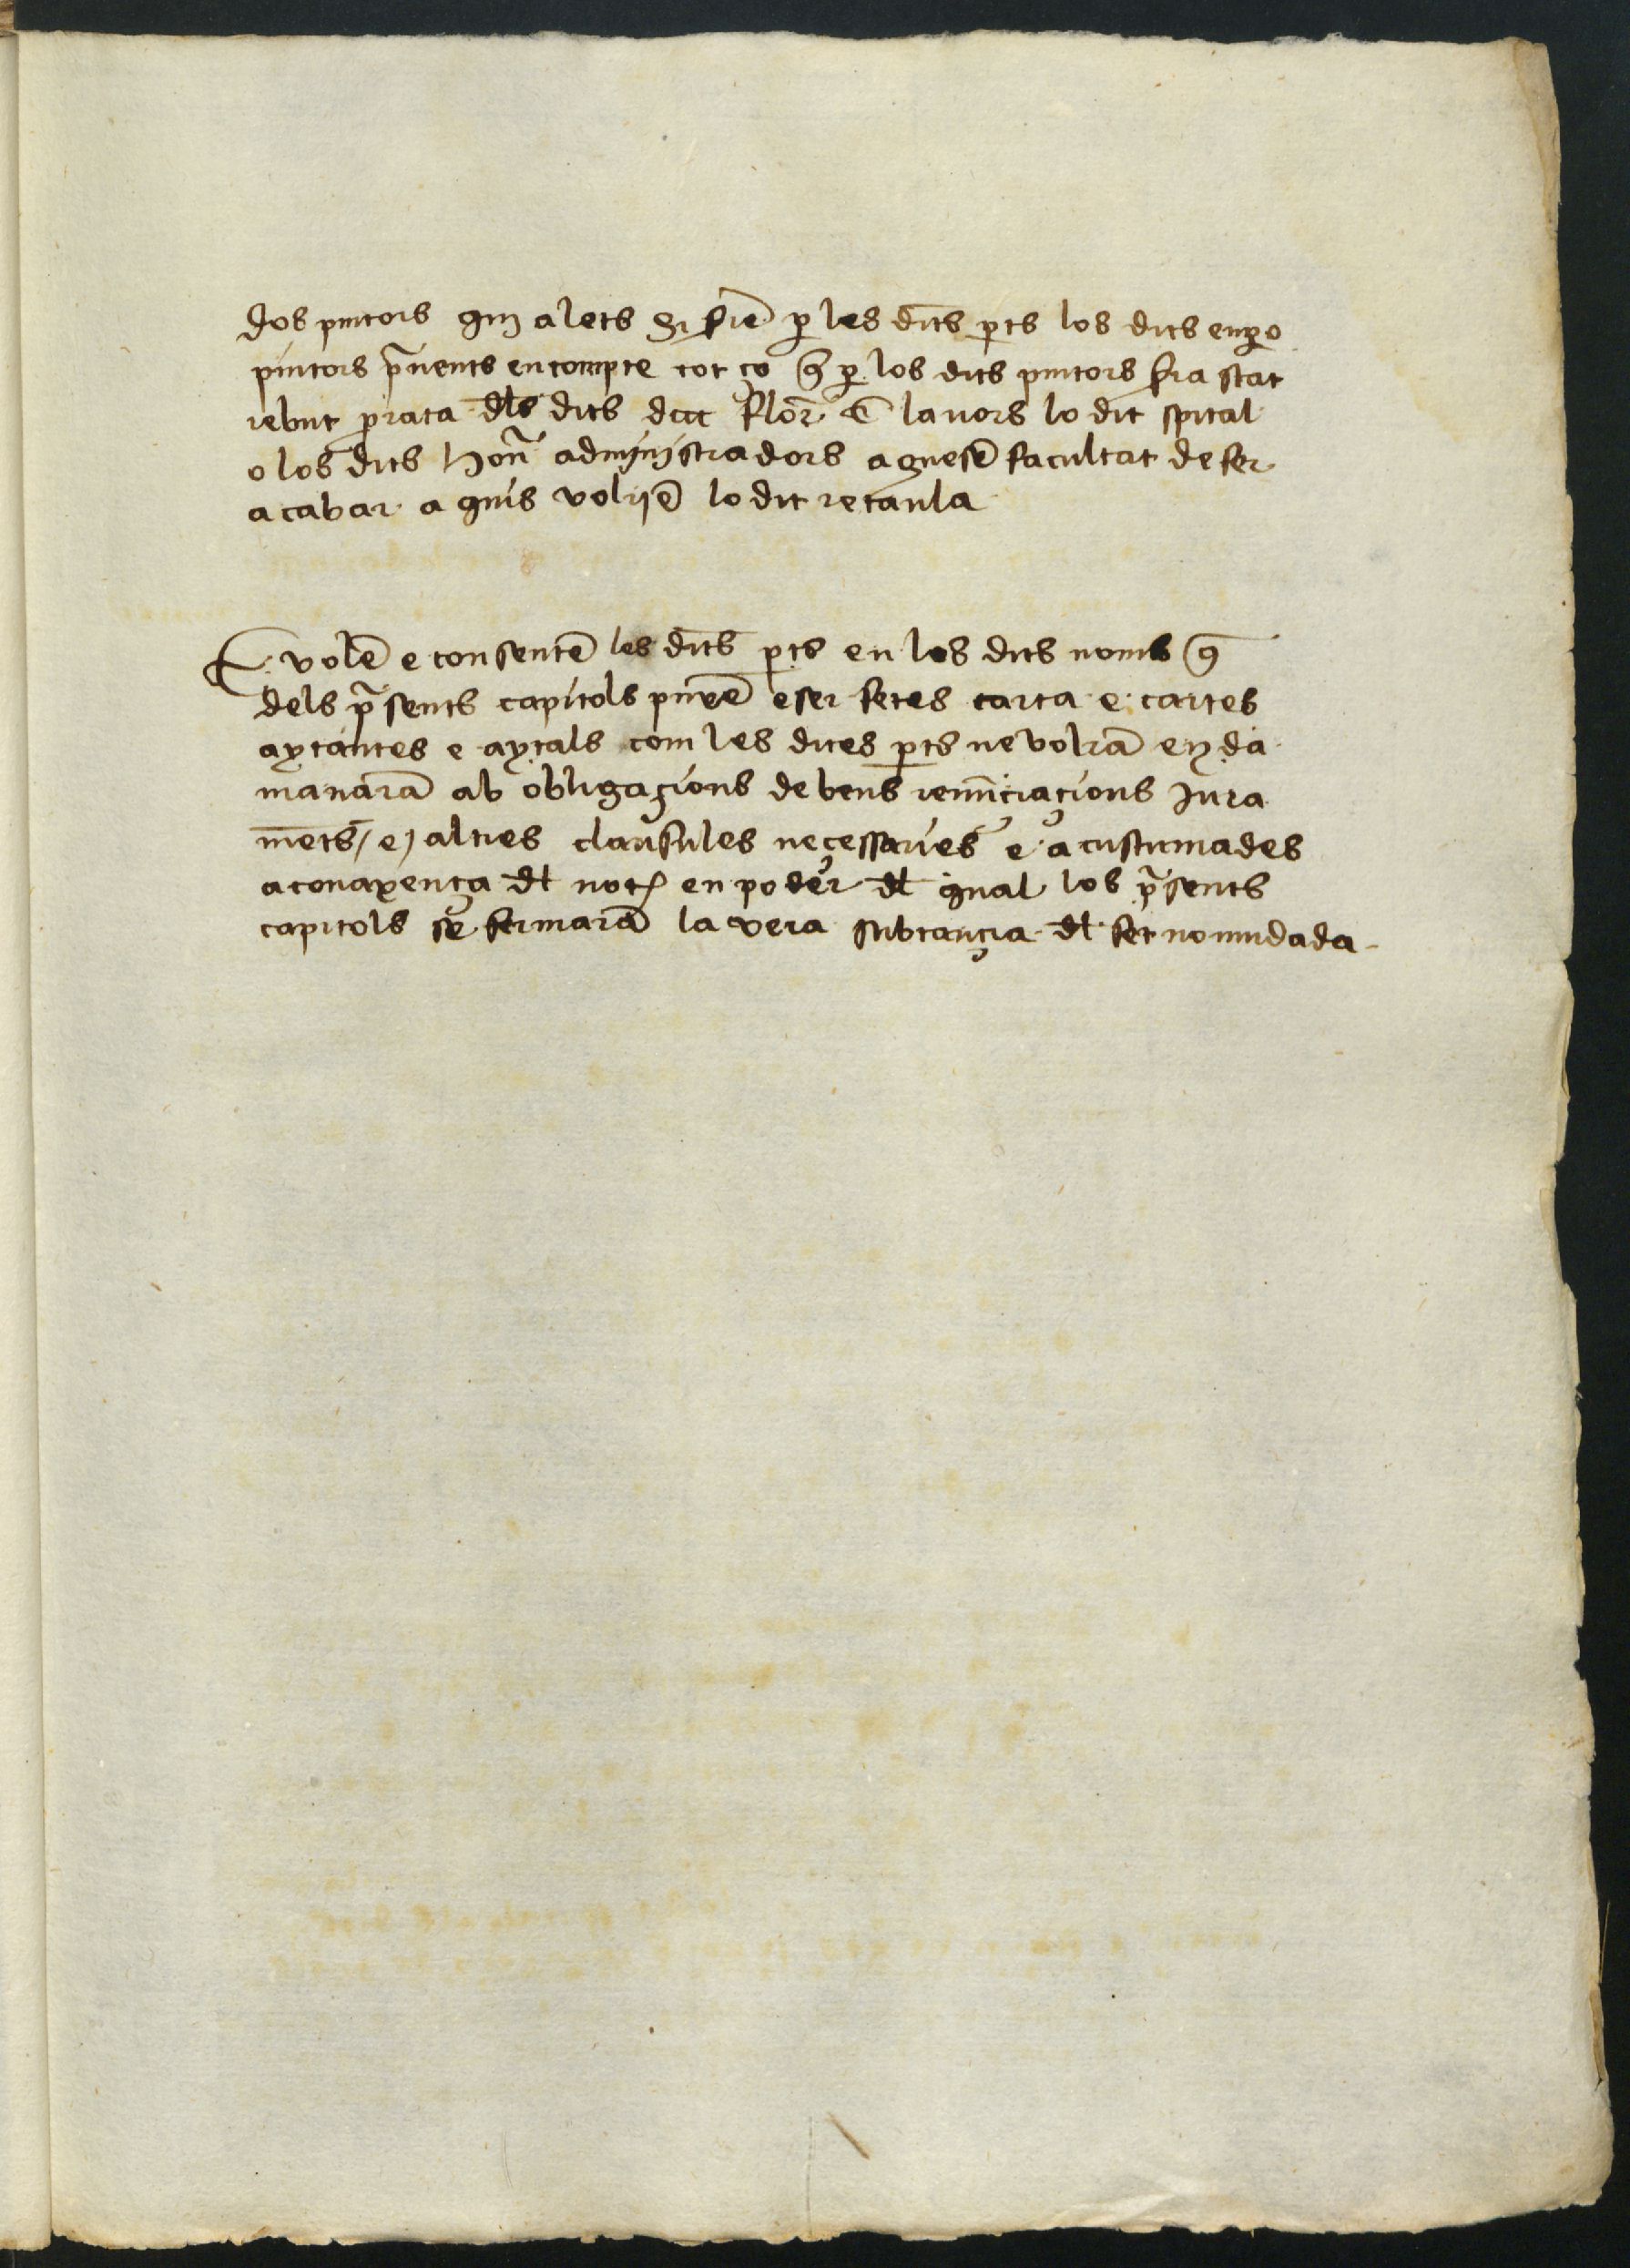 dos pintors qui alets hi sie͂ p les dits pts los dits enpo
pintors p͂nents en compte tot ço q͂ p los dits pintors sia stat
rebut prata dls dits flor͂ E lauors lo dit spital
o los dits hon͂ administradors aguese͂ facultat de fer
acabar a quis volrie͂ lo dit retaula
E vole͂ e consente͂ les dits pts en los dits noms q͂
dels p͂sents capitols puxe͂ eser fetes carta e cartes
aytantes e aytals com les dites pts ne volra͂ e y da
manara͂ ab obligaçions de bens renu͂ciaçions Jura
me͂ts / e / altres clausules neçessaries e acustumades
a conaxença dl not en poder dl qual los p͂sents
capitols se fermara͂ la vera subtançia dl fet no mudada